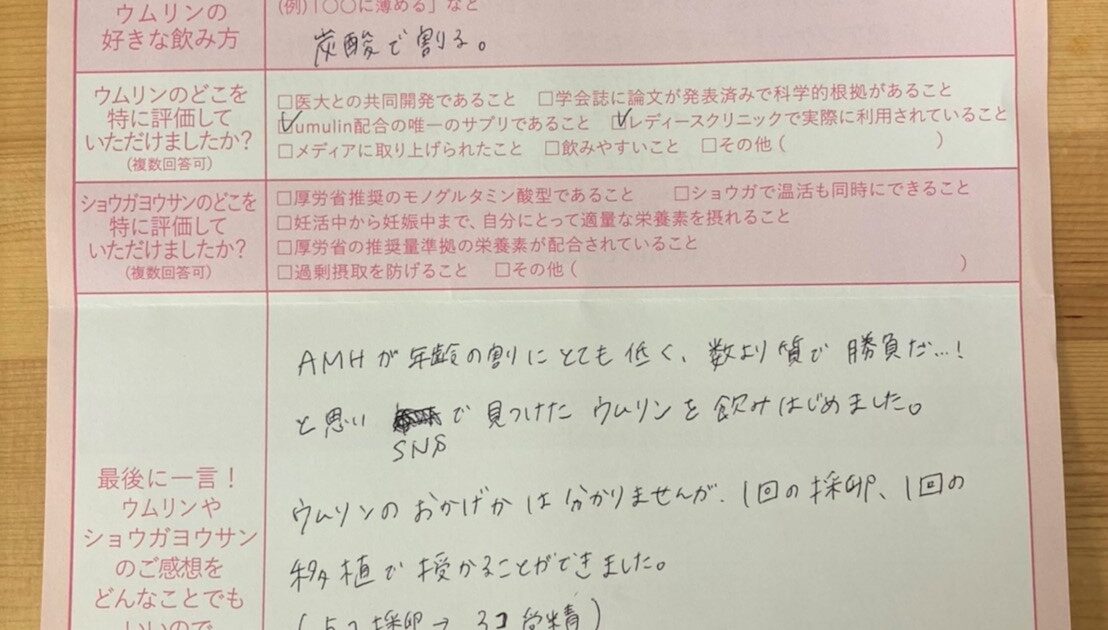 ウムリンの
好きな飲み方
(例)「〇〇に薄める」など
炭酸で割る。
ウムリンのどこを
特に評価して
いただけましたか?
(複数回答可)
□医大との共同開発であること □学会誌に論文が発表済みで科学的根拠があること
☑umulin配合の唯一のサプリであること ☑レディースクリニックで実際に利用されていること
□メディアに取り上げられたこと □飲みやすいこと □その他( )
ショウガヨウサンのどこを
特に評価して
いただけましたか?
(複数回答可)
□厚労省推奨のモノグルタミン酸型であること □ショウガで温活も同時にできること
□妊活中から妊娠中まで、自分にとって適量な栄養素を摂れること
□厚労省の推奨量準拠の栄養素が配合されていること
□過剰摂取を防げること □その他( )
最後に一言!
ウムリンや
ショウガヨウサン
のご感想を
どんなことでも
いいので
AMHが年齢の割にとても低く、数より質で勝負だ…!
と思い で見つけたウムリンを飲みはじめました。
SNS
ウムリンのおかげかは分かりませんが、1回の採卵、1回の
移植で授かることができました。
(5コ採卵→3コ受精)